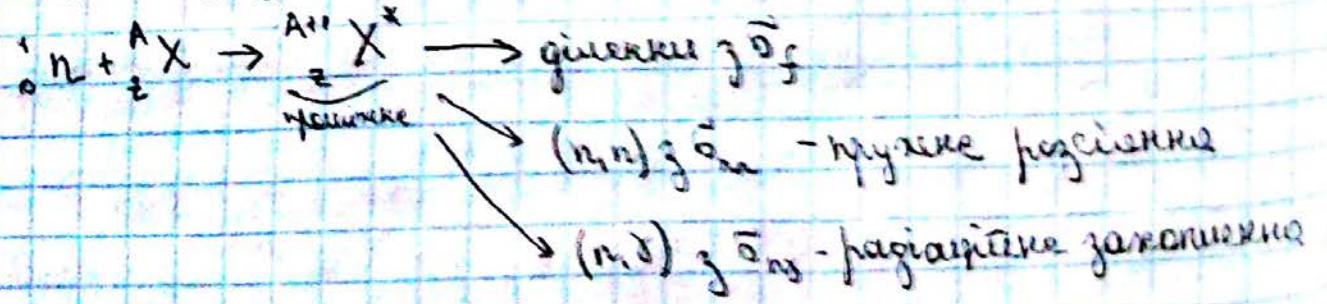 ¹₀n + ᴬ_zX → ᴬ⁺¹_zX* → ділення з σ_f
проміжне
(n,n) з σ_nn - пружне розсіяння
(n,γ) з σ_nγ - радіаційне захоплення